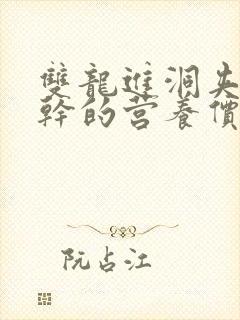 雙龍進洞失
幹的营養價
阮占江